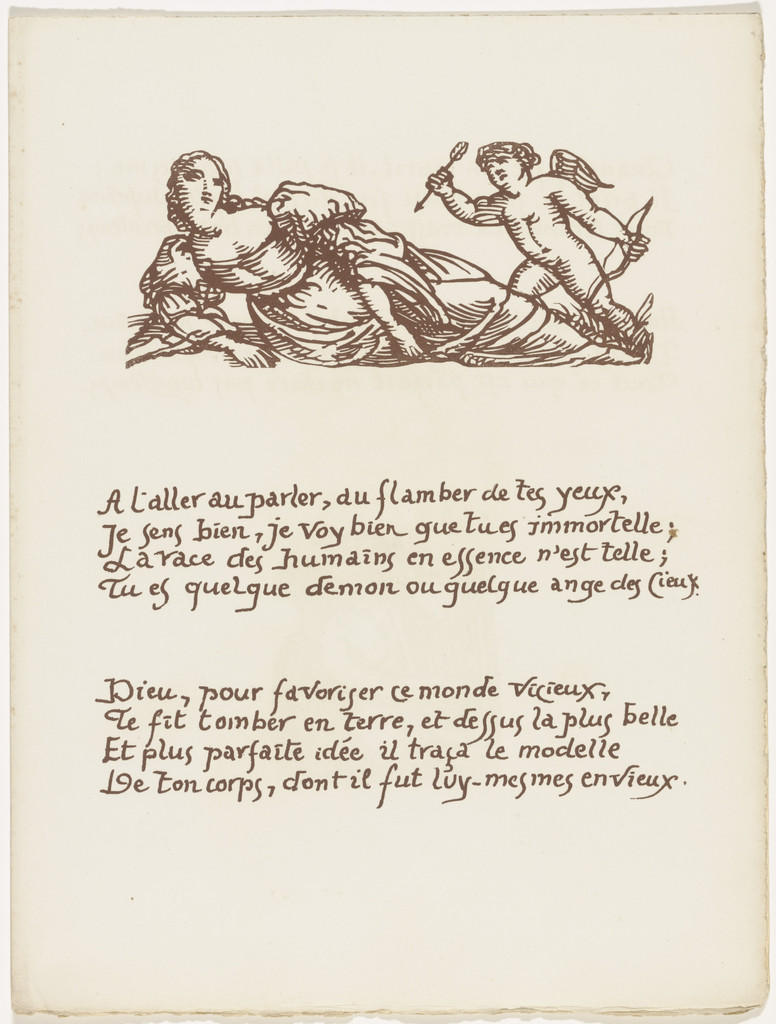 A l'aller au parler, au flamber de tes yeux,
Je sens bien, je voy bien que tu es immortelle;
La race des humains en essence n'est telle;
Tu es quelque demon ou quelque ange des Cieux.
Dieu, pour favoriser ce monde vicieux,
Te fit tomber en terre, et dessus la plus belle
Et plus parfaite idée il traça le modelle
De ton corps, dont il fut luy-mesmes envieux.